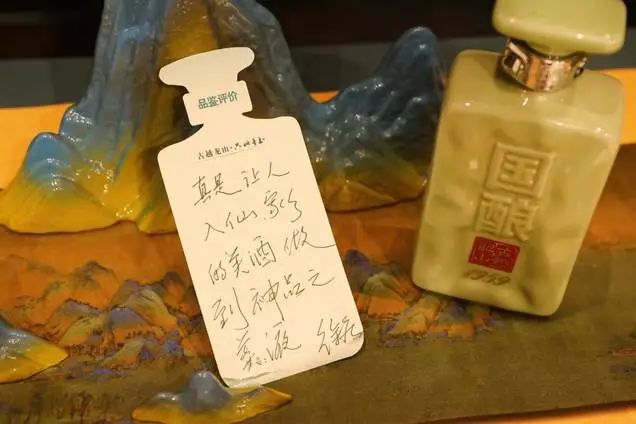 品鉴评价
古越龙山·只此青玉
真是让人
入仙家了
的美酒做
到神品之
美液
国酿
1959